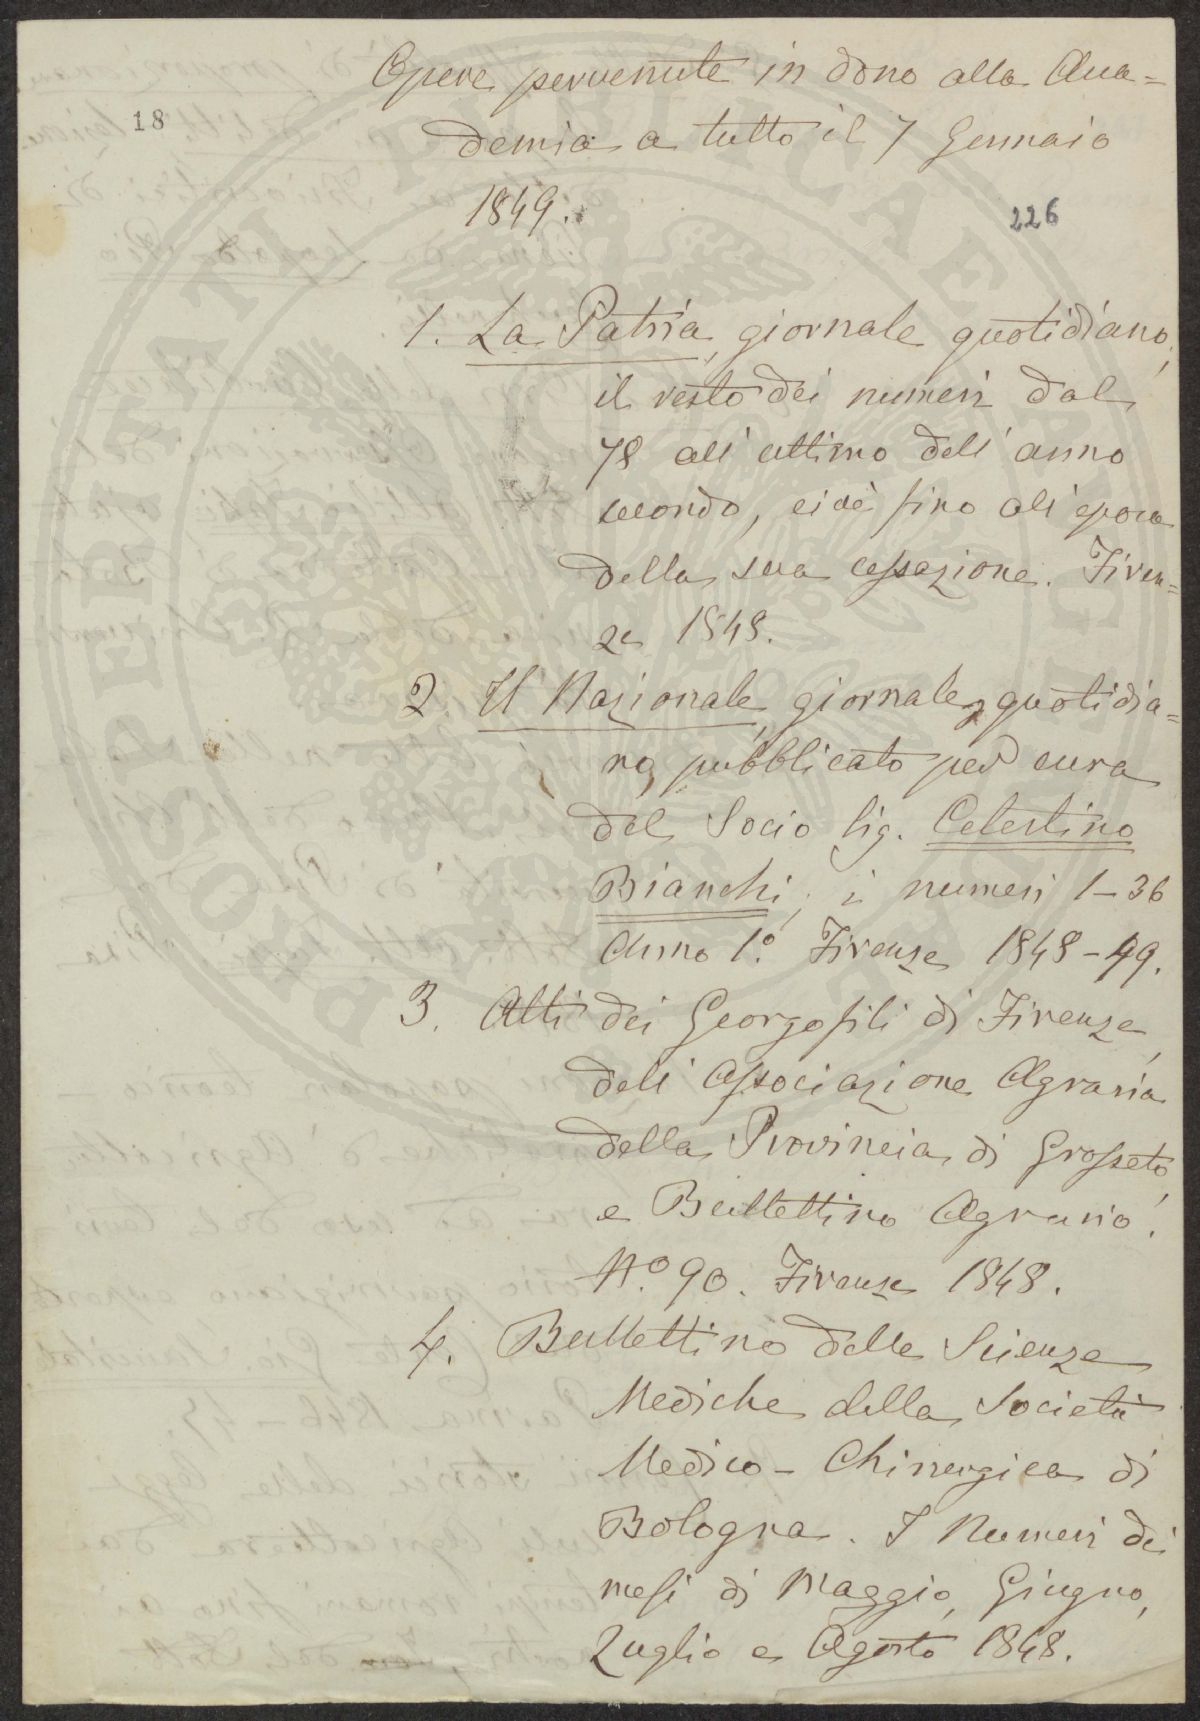 Opere pervenute in dono alla Aca=
demia a tutto il 7 Gennaio
1849.
18
226
1. La Patria, giornale quotidiano,
il resto dei numeri dal
78 all'ultimo dell'anno
secondo, cioè fino all'epoca
della sua cessazione. Firen=
ze 1848.
2. Il Nazionale, giornale quotidia=
no, pubblicato per cura
del Socio Sig. Celestino
Bianchi, i numeri 1–36
Anno 1º. Firenze 1848–49.
3. Atti dei Georgofili di Firenze,
dell'Associazione Agraria
della Provincia di Grosseto,
e Bullettino Agrario.
Nº. 90. Firenze 1848.
4. Bullettino delle Scienze
Mediche della Società
Medico–Chirurgica di
Bologna. I Numeri dei
mesi di Maggio, Giugno,
Luglio e Agosto 1848.
PROSPERITATI PUBLICAE AUGENDAE